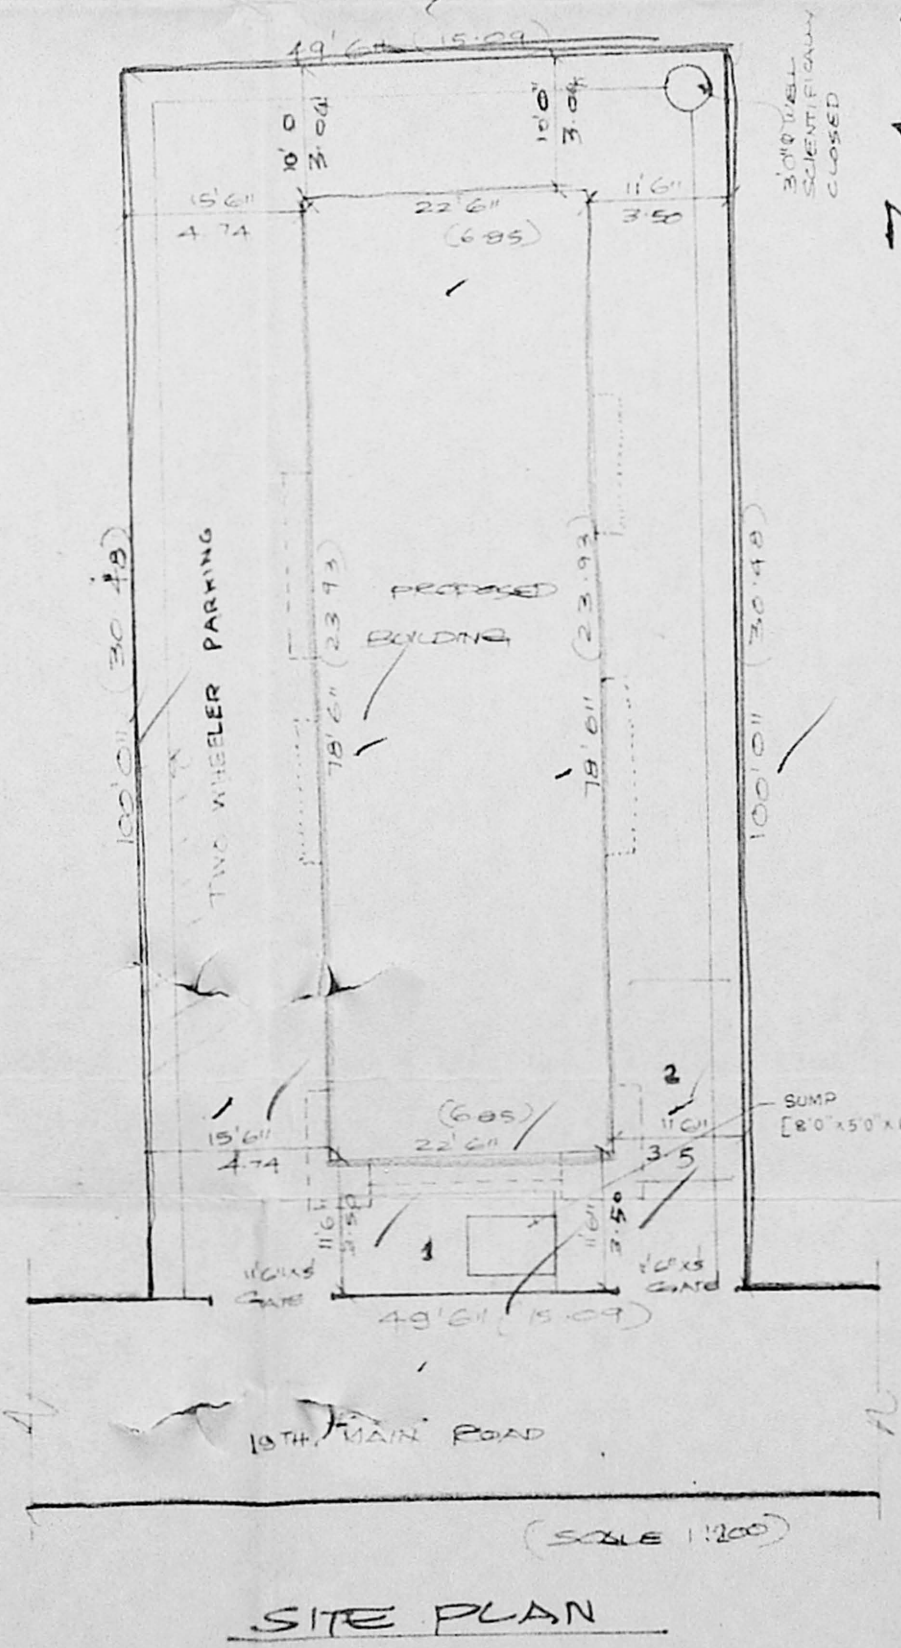 49'6" (15.09)
10'0"
3.04
10'0"
3.04
3'0"Φ WELL
SCIENTIFICALLY
CLOSED
15'6"
4.74
22'6"
(6.85)
11'6"
3.50
100'0" (30.48)
TWO WHEELER PARKING
78'6" (23.93)
PROPOSED
BUILDING
78'6" (23.93)
100'0" (30.48)
2
SUMP
[8'0"x5'0"x
15'6"
4.74
(6.85)
22'6"
11'6"
3.5
11'6"
3.50
1
11'6"
3.50
11'6"x5'
GATE
GATE
49'6" (15.09)
19TH MAIN ROAD
(SCALE 1:200)
SITE PLAN